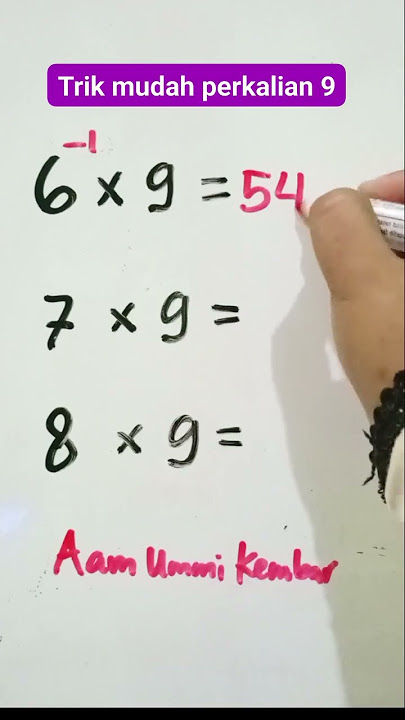 Trik mudah perkalian 9
-1
6 × 9 = 54
7 × 9 =
8 × 9 =
Aam Ummi Kembar